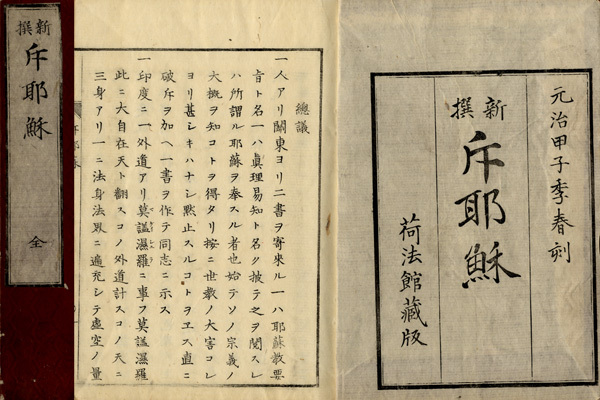 元治甲子季春刻
新撰
斥耶穌
荷法館藏版
總議
一人アリ關東ヨリ二書ヲ寄來ル一ハ耶蘇教要
旨ト名一ハ眞理易知ト名ク披テ之ヲ閲スレ
ハ所謂ル耶蘇ヲ奉スル者也始テソノ宗義ノ
大概ヲ知コトヲ得タリ按ニ世教ノ大害コレ
ヨリ甚シキハナシ黙止スルコトヲヱス直ニ
破斥ヲ加ヘ一書ヲ作テ同志ニ示ス
一印度ニ一外道アリ莫謚濕羅ニ事フ莫謚濕羅
此ニ大自在天ト翻スコノ外道計スコノ天ニ
三身アリ一ニ法身法界ニ遍充シテ虚空ノ量
新撰
斥耶穌
全